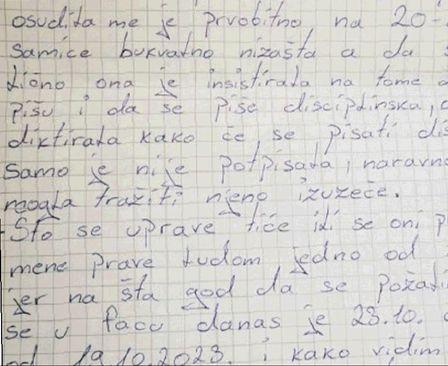 osudila me je prvobitno na 20-
samice bukvalno nizašta a da s
lično ona je insistirala na tome d
pišu i da se piše disciplinska,
diktirala kako će se pisati di
Samo je nije potpisala, naravno
mogla tražiti njeno izuzeće.
Što se uprave tiče ili se oni p
mene prave ludom jedno od
jer na šta god da se požali
se u facu danas je 28.10.
od 19.10.2023. i kako vidim